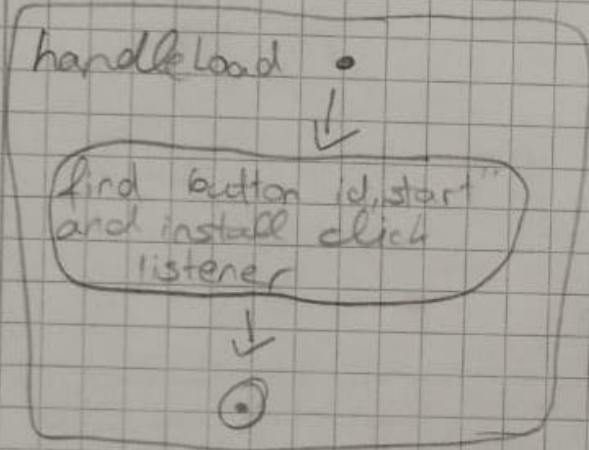 handleLoad
find button id „start"
and install click
listener